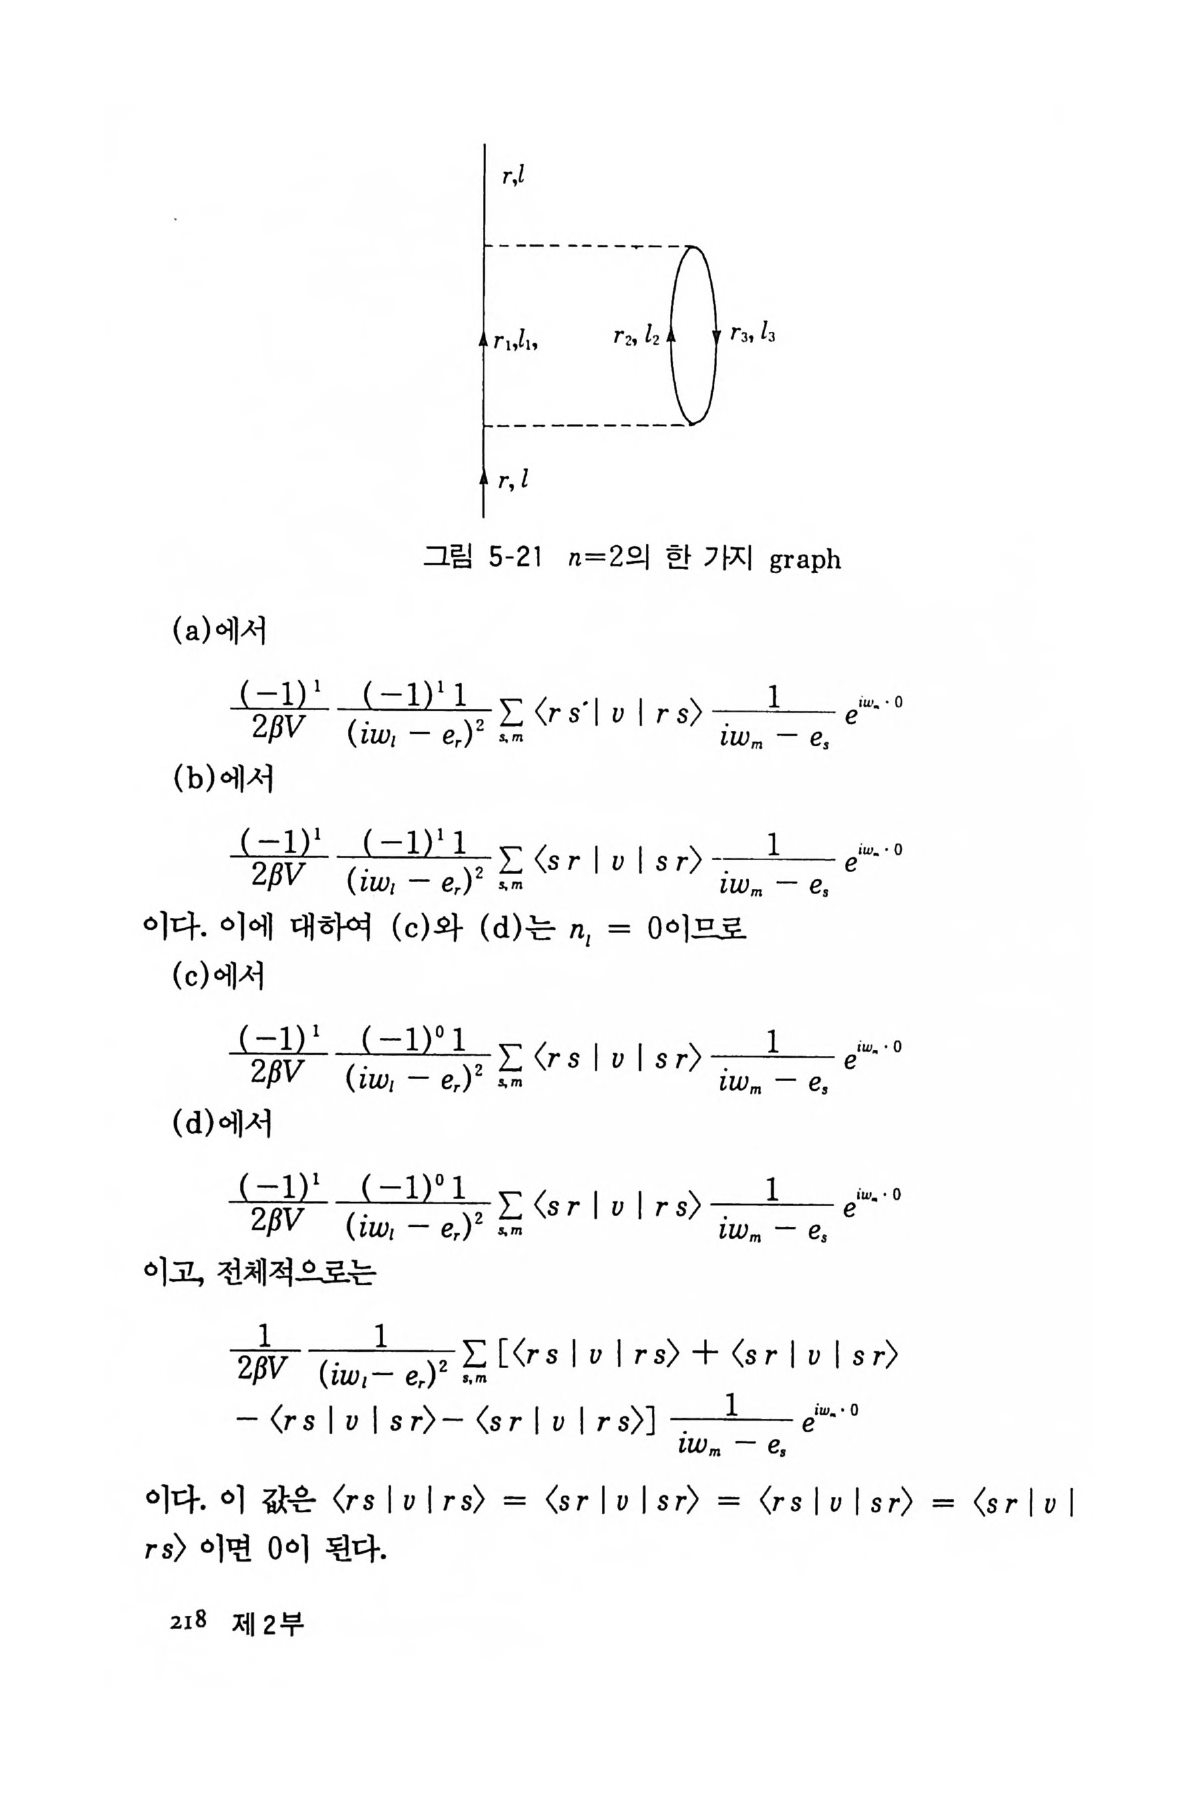 r,l
r₁,l₁,
r₂, l₂
r₃, l₃
r, l
그림 5-21 n=2의 한 가지 graph
(a)에서
(−1)¹/2βV (−1)¹1/(iwₗ − eᵣ)² ∑ₛ,ₘ ⟨r s | v | r s⟩ 1/(iwₘ − eₛ) e^{iwₘ·0}
(b)에서
(−1)¹/2βV (−1)¹1/(iwₗ − eᵣ)² ∑ₛ,ₘ ⟨s r | v | s r⟩ 1/(iwₘ − eₛ) e^{iwₘ·0}
이다. 이에 대하여 (c)와 (d)는 nₗ = 0이므로
(c)에서
(−1)¹/2βV (−1)⁰1/(iwₗ − eᵣ)² ∑ₛ,ₘ ⟨r s | v | s r⟩ 1/(iwₘ − eₛ) e^{iwₘ·0}
(d)에서
(−1)¹/2βV (−1)⁰1/(iwₗ − eᵣ)² ∑ₛ,ₘ ⟨s r | v | r s⟩ 1/(iwₘ − eₛ) e^{iwₘ·0}
이고, 전체적으로는
1/2βV 1/(iwₗ − eᵣ)² ∑ₛ,ₘ [⟨r s | v | r s⟩ + ⟨s r | v | s r⟩
− ⟨r s | v | s r⟩ − ⟨s r | v | r s⟩] 1/(iwₘ − eₛ) e^{iwₘ·0}
이다. 이 값은 ⟨r s | v | r s⟩ = ⟨s r | v | s r⟩ = ⟨r s | v | s r⟩ = ⟨s r | v |
r s⟩ 이면 0이 된다.
218 제2부